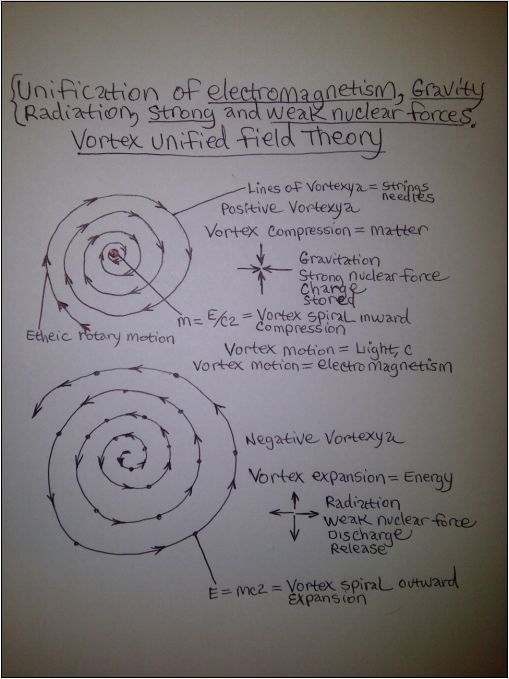 {Unification of electromagnetism, Gravity
{Radiation, Strong and weak nuclear forces.
Vortex unified field Theory
Lines of Vortexya = Strings
needles
Positive Vortexya
Vortex compression = matter
Gravitation
Strong nuclear force
Charge
Stored
m = E/c2 = Vortex spiral inward
compression
Etheic rotary motion
Vortex motion = Light, c
Vortex motion = electromagnetism
Negative Vortexya
Vortex expansion = Energy
Radiation
Weak nuclear force
Discharge
Release
E = mc2 = Vortex spiral outward
Expansion